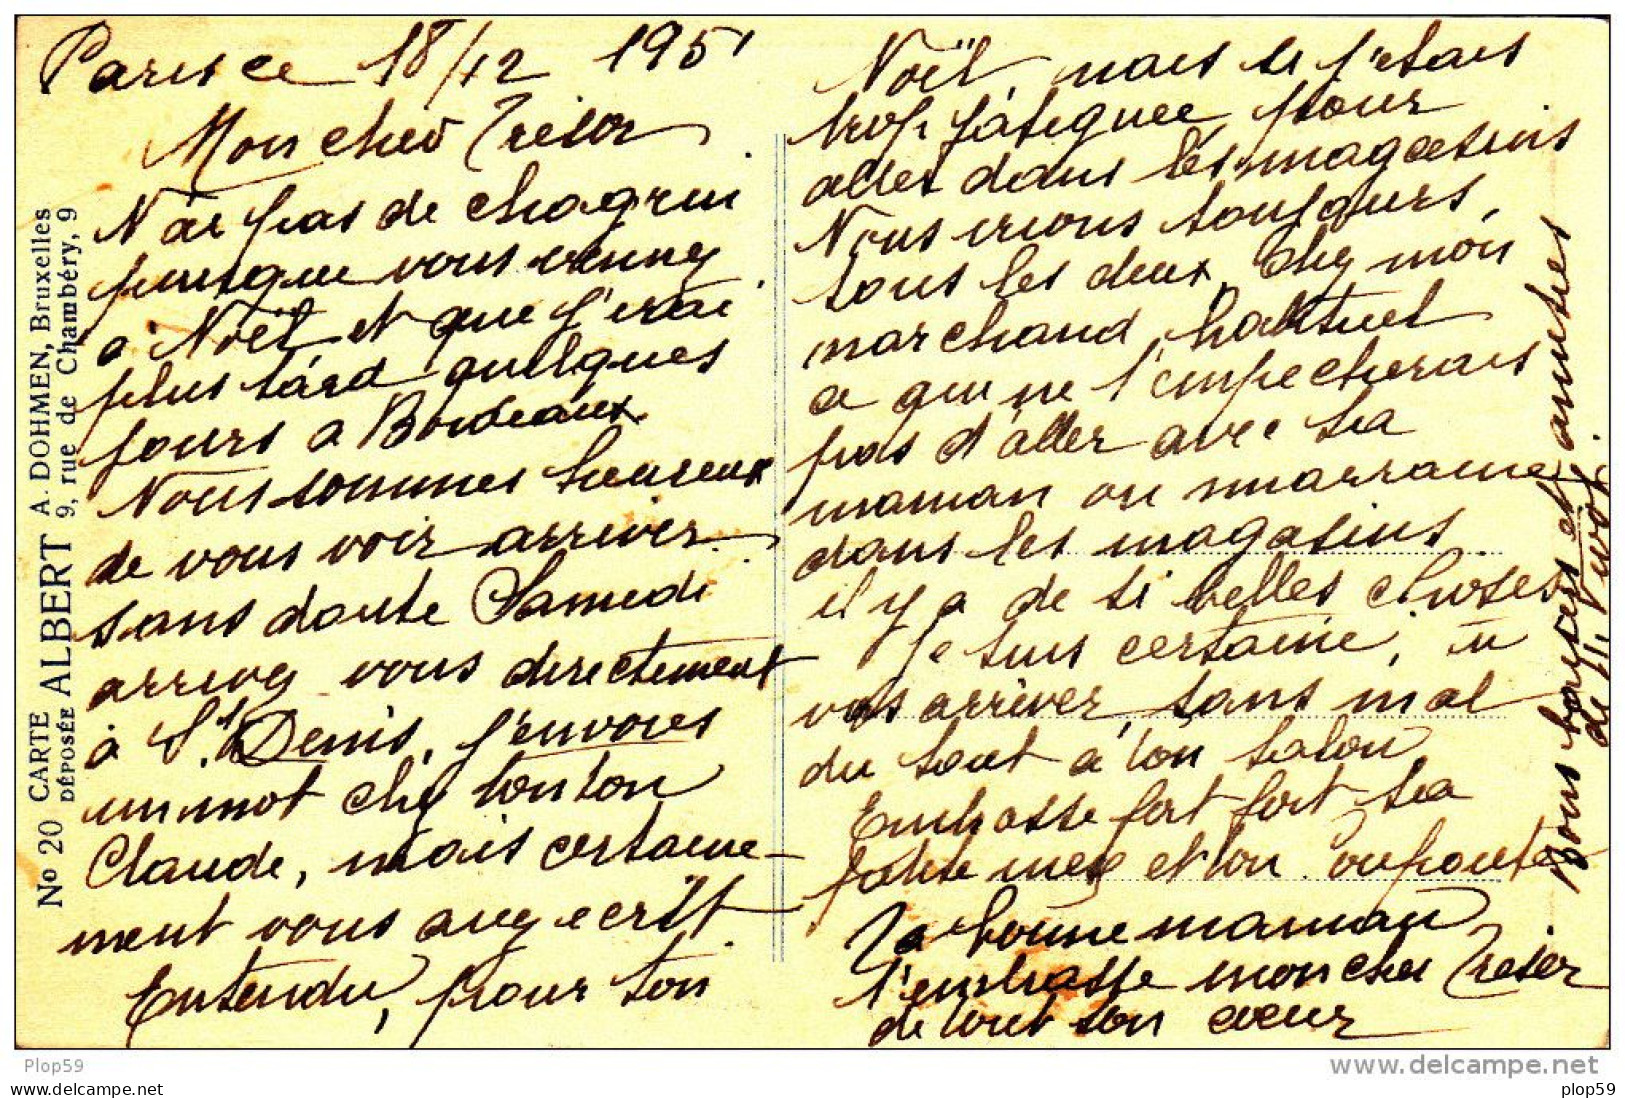 Paris ce 18/12 1951
Mon cher Trésor
N'ai pas de chagrin
puisque vous venez
à Noël et que j'irai
plus tard quelques
jours a Bordeaux.
Nous sommes heureux
de vous voir arriver
sans doute Samedi
arrivez vous directement
à St Denis, j'envoies
un mot chez tonton
Claude, mais certaine-
ment vous avez ecrit.
Entendu, pour ton
Noël, mais je serais
trop fatiguée pour
aller dans les magasins
Nous irions toujours,
tous les deux, chez mon
marchand habituel
ce qui ne t'empecherais
pas d'aller avec ta
maman ou marraine
dans les magasins
il y a de si belles choses
Je suis certaine, tu
vas arriver sans mal
du tout à ton salon
Embrasse fort fort ta
petite mere et ton
Ta bonne maman
t'embrasse mon cher Tresor
de tout son cœur
Bons baisers et amities
de
No 20 CARTE DÉPOSÉE ALBERT A. DOHMEN, Bruxelles
9, rue de Chambéry, 9
Plop59
www.delcampe.net
plop59